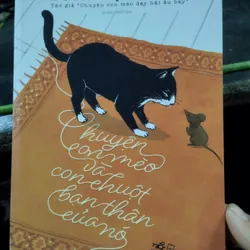 Tác giả "Chuyện con mèo dạy hải âu bay"
Chuyện
con mèo
và
con chuột
bạn thân
của nó